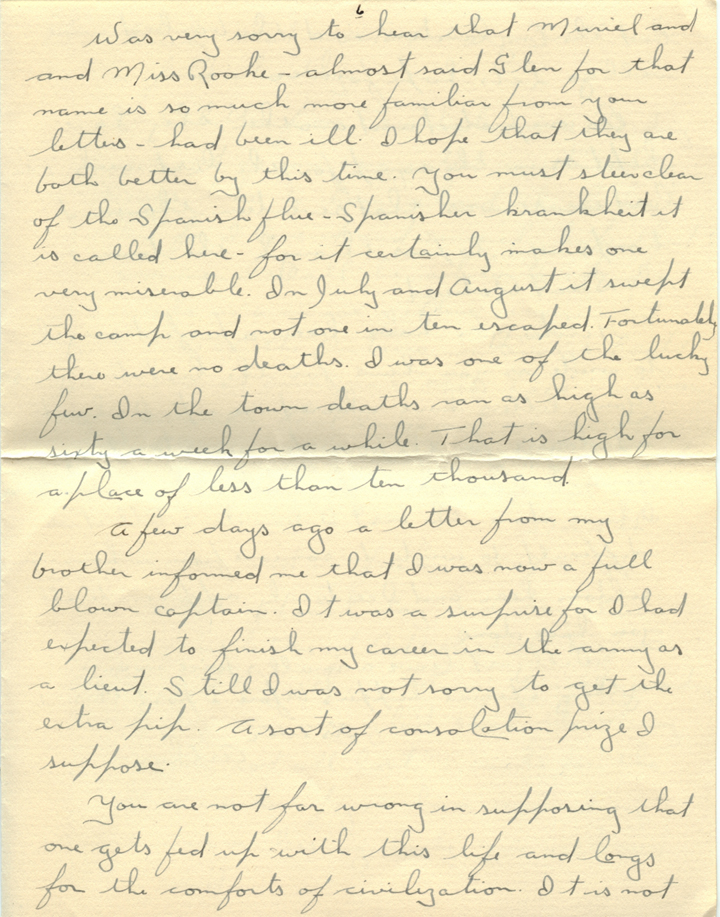 6
Was very sorry to hear that Muriel and
and Miss Rooke - almost said Glen for that
name is so much more familiar from your
letters - had been ill. I hope that they are
both better by this time. You must steer clear
of the Spanish flue - Spanisher krankheit it
is called here - for it certainly makes one
very miserable. In July and August it swept
the camp and not one in ten escaped. Fortunately
there were no deaths. I was one of the lucky
few. In the town deaths ran as high as
sixty a week for a while. That is high for
a place of less than ten thousand.
A few days ago a letter from my
brother informed me that I was now a full
blown captain. It was a surprise for I had
expected to finish my career in the army as
a lieut. Still I was not sorry to get the
extra pip. A sort of consolation prize I
suppose.
You are not far wrong in supposing that
one gets fed up with this life and longs
for the comforts of civilization. It is not